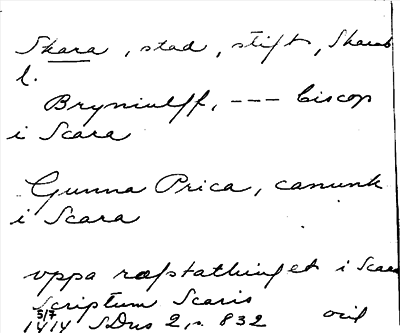 Skara, stad, stift, Skarab
l.
Bryniulff, --- biscop
i Scara
Gunna Prica, canunk
i Scara
vppa ræfstathinget i Scara
Scriptum Scaris
5/7
1414 SDns 2, s. 832 oril